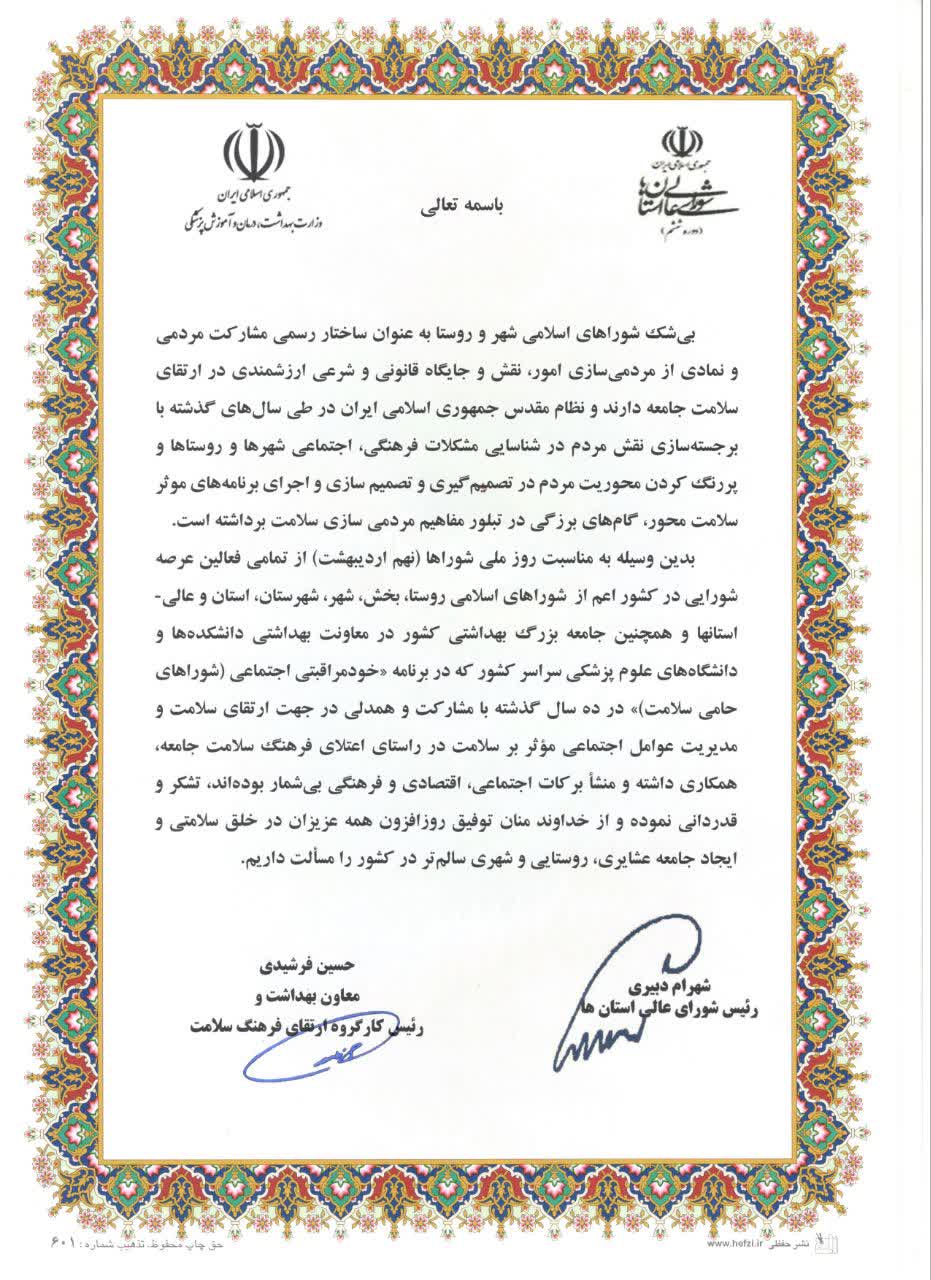 جمهوری اسلامی ایران
شورای عالی استان‌ها
(دوره ششم)
باسمه تعالی
جمهوری اسلامی ایران
وزارت بهداشت، درمان و آموزش پزشکی
بی‌شک شوراهای اسلامی شهر و روستا به عنوان ساختار رسمی مشارکت مردمی
و نمادی از مردمی‌سازی امور، نقش و جایگاه قانونی و شرعی ارزشمندی در ارتقای
سلامت جامعه دارند و نظام مقدس جمهوری اسلامی ایران در طی سال‌های گذشته با
برجسته‌سازی نقش مردم در شناسایی مشکلات فرهنگی، اجتماعی شهرها و روستاها و
پررنگ کردن محوریت مردم در تصمیم‌گیری و تصمیم سازی و اجرای برنامه‌های موثر
سلامت محور، گام‌های برزگی در تبلور مفاهیم مردمی سازی سلامت برداشته است.
بدین وسیله به مناسبت روز ملی شوراها (نهم اردیبهشت) از تمامی فعالین عرصه
شورایی در کشور اعم از شوراهای اسلامی روستا، بخش، شهر، شهرستان، استان و عالی-
استانها و همچنین جامعه بزرگ بهداشتی کشور در معاونت بهداشتی دانشکده‌ها و
دانشگاه‌های علوم پزشکی سراسر کشور که در برنامه «خودمراقبتی اجتماعی (شوراهای
حامی سلامت)» در ده سال گذشته با مشارکت و همدلی در جهت ارتقای سلامت و
مدیریت عوامل اجتماعی مؤثر بر سلامت در راستای اعتلای فرهنگ سلامت جامعه،
همکاری داشته و منشأ برکات اجتماعی، اقتصادی و فرهنگی بی‌شمار بوده‌اند، تشکر و
قدردانی نموده و از خداوند منان توفیق روزافزون همه عزیزان در خلق سلامتی و
ایجاد جامعه عشایری، روستایی و شهری سالم‌تر در کشور را مسألت داریم.
شهرام دبیری
رئیس شورای عالی استان ها
حسین فرشیدی
معاون بهداشت و
رئیس کارگروه ارتقای فرهنگ سلامت
نشر حفظی www.hefzi.ir
حق چاپ محفوظ. تذهیب شماره : ۶۰۱